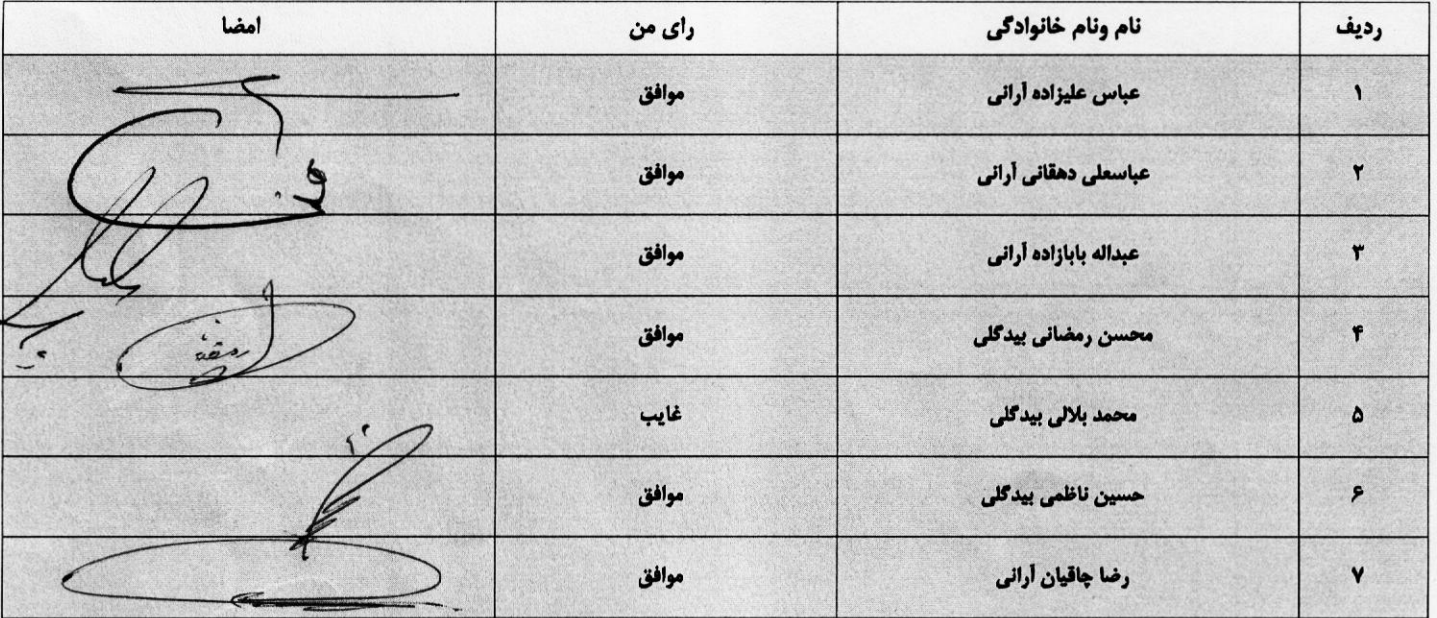 ردیف نام ونام خانوادگی رای من امضا
۱ عباس علیزاده آرانی موافق
۲ عباسعلی دهقانی آرانی موافق
۳ عبداله بابازاده آرانی موافق
۴ محسن رمضانی بیدگلی موافق
۵ محمد بلالی بیدگلی غایب
۶ حسین ناظمی بیدگلی موافق
۷ رضا چاقیان آرانی موافق